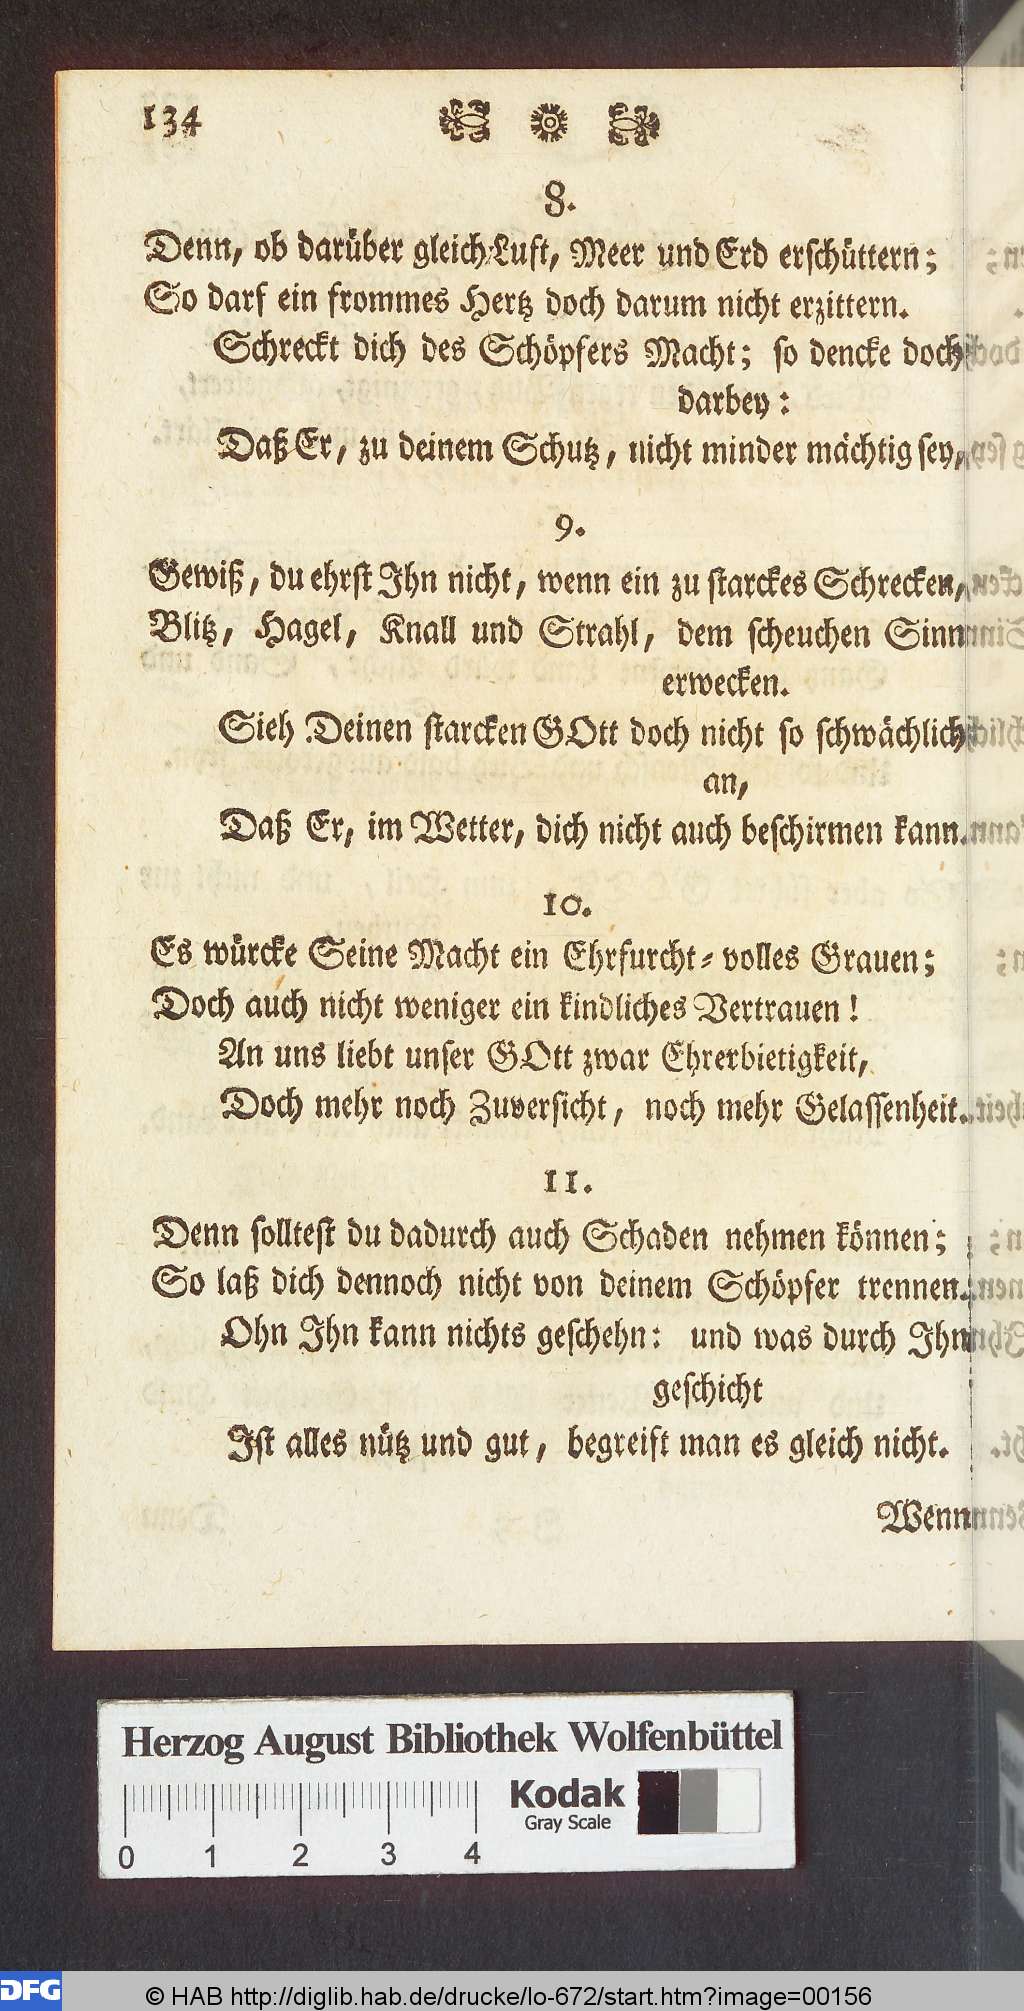 134
8.
Denn, ob darüber gleich Luft, Meer und Erd erschüttern;
So darf ein frommes Hertz doch darum nicht erzittern.
Schreckt dich des Schöpfers Macht; so dencke doch
darbey:
Daß Er, zu deinem Schutz, nicht minder mächtig sey,
9.
Gewiß, du ehrst Ihn nicht, wenn ein zu starckes Schrecken,
Blitz, Hagel, Knall und Strahl, dem scheuchen Sinn
erwecken.
Sieh Deinen starcken GOtt doch nicht so schwächlich
an,
Daß Er, im Wetter, dich nicht auch beschirmen kann.
10.
Es würcke Seine Macht ein Ehrfurcht-volles Grauen;
Doch auch nicht weniger ein kindliches Vertrauen!
An uns liebt unser GOtt zwar Ehrerbietigkeit,
Doch mehr noch Zuversicht, noch mehr Gelassenheit.
11.
Denn solltest du dadurch auch Schaden nehmen können;
So laß dich dennoch nicht von deinem Schöpfer trennen.
Ohn Ihn kann nichts geschehn: und was durch Ihn
geschicht
Ist alles nütz und gut, begreift man es gleich nicht.
Wenn
Herzog August Bibliothek Wolfenbüttel
Kodak
Gray Scale
0 1 2 3 4
DFG
© HAB http://diglib.hab.de/drucke/lo-672/start.htm?image=00156